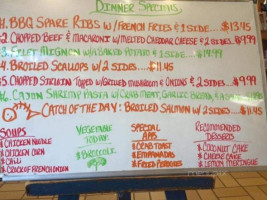 Dinner Specials
#1. BBQ Spare Ribs w/French Fries & 1 side... $13.95
#2. Chopped Beef & Macaroni w/Melted Cheddar Cheese & 2 sides.. $9.99
#3. Filet Mignon w/a Baked Potato & 1 side.. $14.99
#4. Broiled Scallops w/ 2 sides.. $11.45
#5. Chopped Sirloin Topped w/Grilled Mushroom & Onions & 2 sides.. $9.99
#6. Cajun Shrimp Pasta w/ Crab Meat, Garlic Bread
Catch of the Day: Broiled Salmon w/ 2 sides.. $11.45
Soups
Chicken Noodle
Chicken Corn
Chili
Crock of French Onion
Vegetable
Today:
Broccoli
Special
Apps
Crab Toast
Empanadas
Fried Pierogies
Recommended
Desserts
Coconut Cake
Cheese Cake
Lemon Meringue